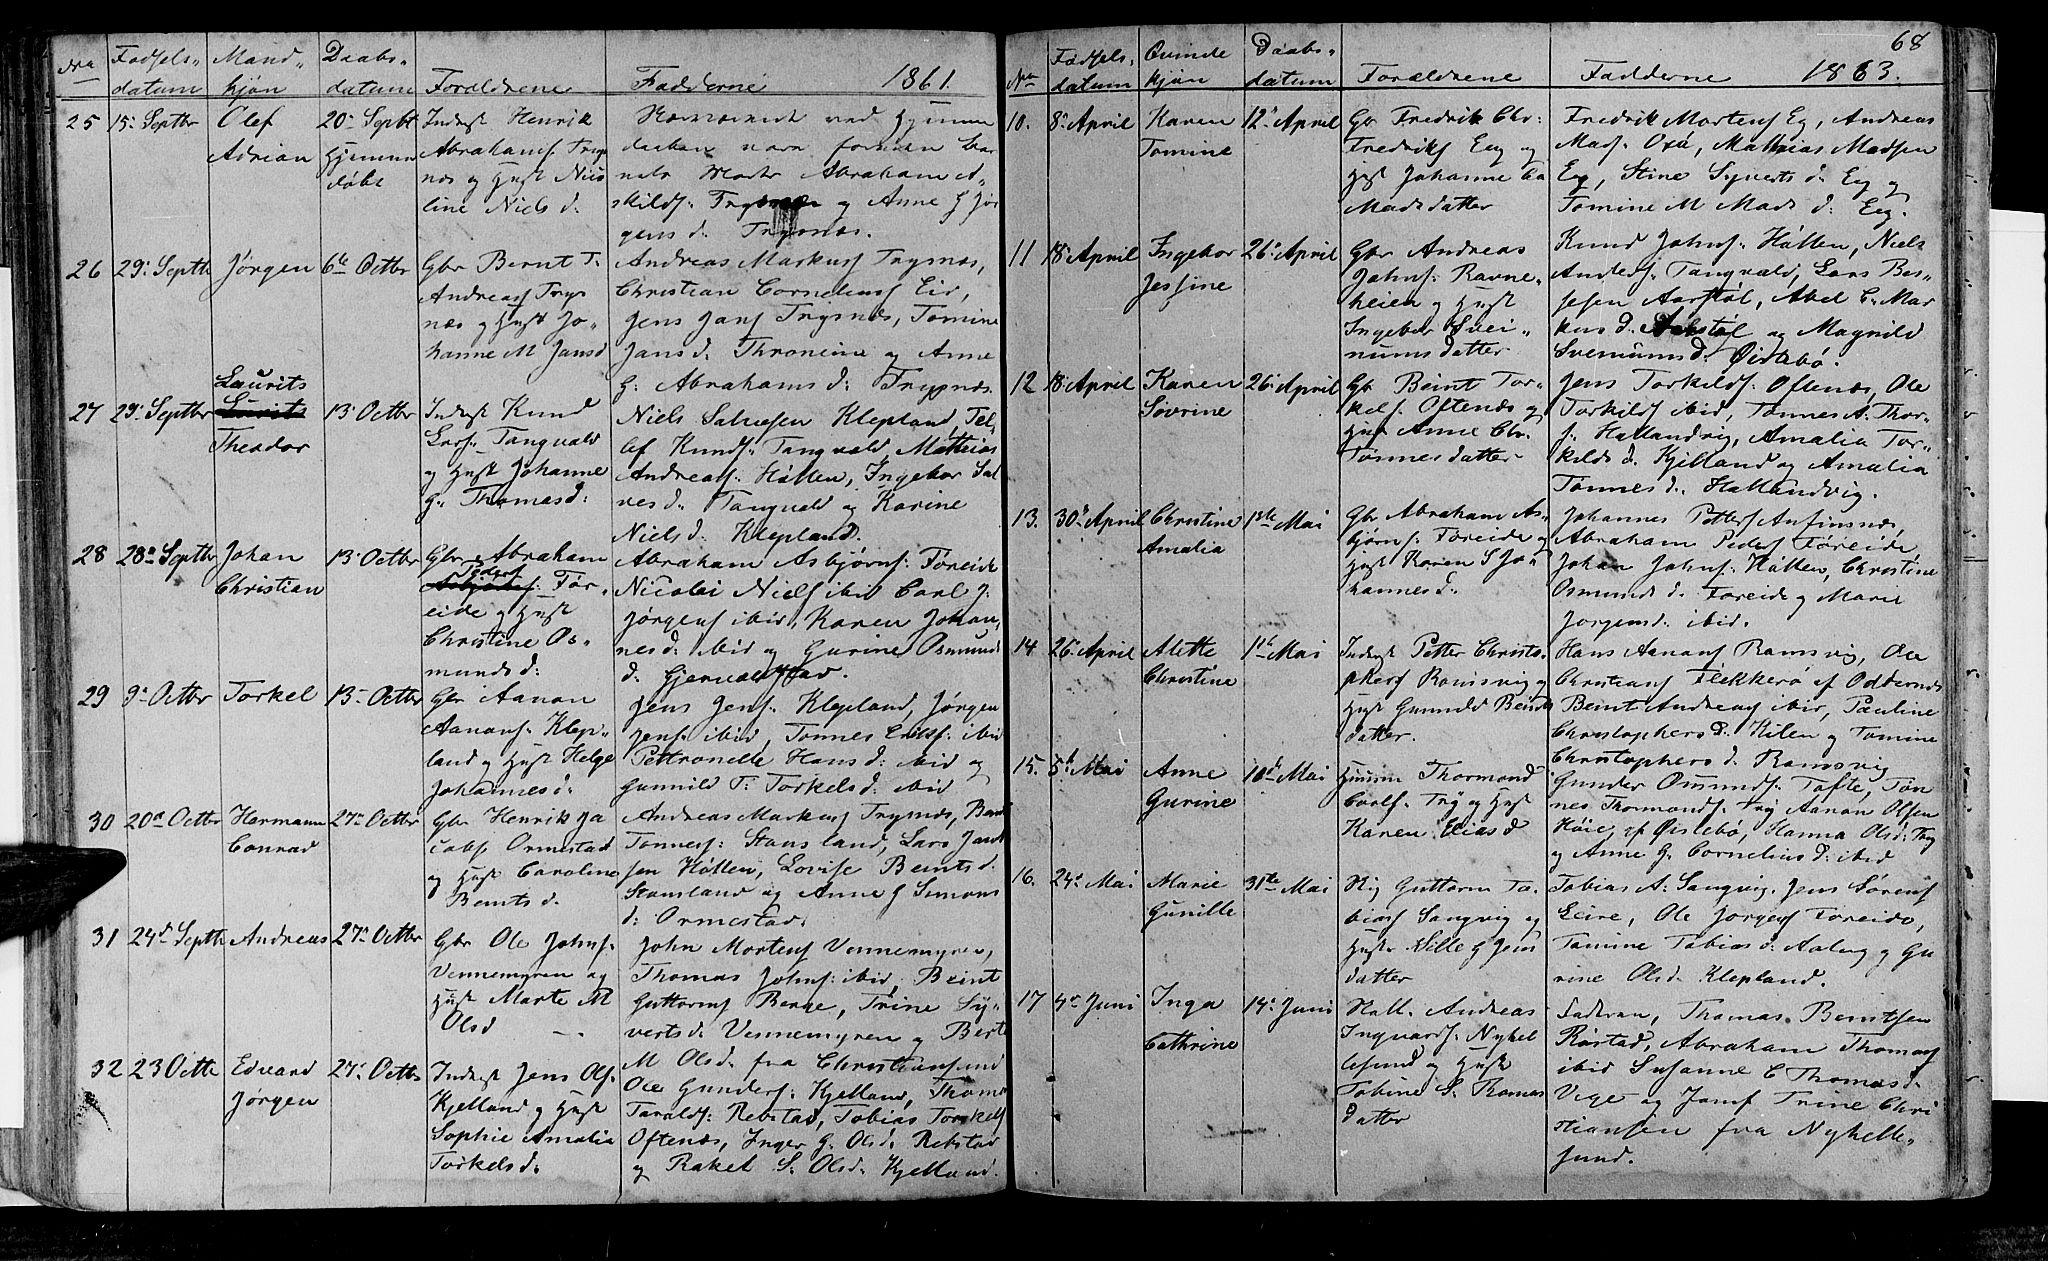 Nra Fødsels- Mand- Daabs-
datum kjøn datum Forældrene Fadderne 1861.
25 15 Septbr Olef Adrian 20 Septbr Hjemmedøbt
Indegst Henrik
Abrahams. Trys
næs og Hust Nico
line Niels d.
Nærværende ved Hjemme
daaben vare foruden bar
nets Moder Abraham A
skilds. Trysnæs og Anne G Jør
gens d. Trysnæs.
26 29 Septbr Jørgen 6te Octbr
Gbr Bernt T.
Andreass Trys
næs og Hust Jo-
hanne M Jansd
Andreas Markuss Trysnæs,
Christian Corneliuss Eid,
Jens Jans Trysnæs, Tomine
Jans d. Throneine og Anne
G. Abrahams d. Trysnæs.
27 29 Septbr Laurits Theodor 13 Octbr
Indegst Knud
Lars. Tangvald
og Hust Johanne
G. Thomas d.
Niels Salvesen Klepland, Tel
lef Knuds. Tangvald, Mathias
Andreas. Hølten, Ingebor Sal
ves d. Tangvald og Karine
Niels d. Klepland.
28 28 Septbr Johan Christian 13 Octbr
Gbr Abraham
Peders
Før-
eide og Hust
Christine Os-
munds d.
Abraham Asbjørns. Føreide
Nicolai Niels ibid Carl J.
Jørgens ibid, Karen Johan
nes d. ibid og Gurine Osmunds
d.
29 9 Octbr Torkel 13 Octbr
Gbr Aanon
Aanons. Klep-
land og Hust Helge
Johannes d.
Jens Jens. Klepland, Jørgen
Jens. ibid, Tonnes Eriks. ibid
Pettronelle Hans d. ibid og
Gunnild T. Torkels d. ibid
30 20 Octbr Hermann Conrad 27 Octbr
Gbr Henrik Ja
cobs Ormestad
og Hust Caroline
Bernts d.
Andreas Markuss Trysnæs, Bernt
Tonness. Stansland, Lars Jant
sen Hølten, Lovise Bernts d.
Stansland og Anne G Simons
d. Ormestad.
31 24 Septbr Andreas 27 Octbr
Gbr Ole Johns.
Vennemyren og
Hust Marte M
Olsd
John Mortens Vennemyren,
Thomas Johns. ibid, Beint
Guttorms Berge, Trine Sy-
verts d. Vennemyren og Berte
M Ols d. fra Christianssund
32 23 Octbr Edvard Jørgen 27 Octbr
Indegst Jens Ols.
Kjelland og Hust
Sophie Amalia
Torkels d.
Ole Gunders. Kjelland, Thomas
Taralds. Rebstad, Tobias Torkels
Oftenæs, Inger G. Ols d. Rebstad
og Rakel S. Ols d. Kjelland.
68
Nra Fødsels- Qvinde Daabs-
datum kjøn datum Forældrene Fadderne 1863.
10. 8 April Karen Tomine 12 April
Gbr Fredrik Chr.
Fredriks Eeg og
Hust Johanne
Mads datter
Fredrik Mortens Eg, Andreas
Mads. Oxø, Mathias Madsen
Eeg, Stine Syverts d. Eeg og
Tomine M Mads d. Eeg.
11 18 April Ingebor Jessine 26 April
Gbr Andreas
Johns. Ravne-
heien og Hust
Ingebor Svei-
nums datter
Knud Johns. Hølten, Niels
Anders. Tangvald, Lars Bes-
sesen Aarstøl, Abel C. Mar
kus d. Aarstøl og Magnild
Svenums d. Øislebø.
12 18 April Karen Sovrine 26 April
Gbr Beint Tor-
kels. Oftenæs og
Hust Anne Chr.
Tonnes datter
Jens Torkilds. Oftenæs, Ole
Torkilds ibid, Tonnes A. Thor-
s. Hallandvig, Amalia Tor-
kilds d. Kjelland og Amalia
Tonnes d. Hallandvig.
13. 30 April Christine Amalia 1ste Mai
Gbr Abraham As-
bjørns. Føreide og
Hust Karen S Jo-
hannes d.
Johannes Petters Anfinsnæs
Abraham Peders Føreide,
Johan Johns. Hølten, Christine
Osmunds d. Foreide og Marie
Jorgens d. ibid.
14 26 April Alette Christine 1ste Mai
Indegst Petter Christo-
phers Ramsvig og
Hust Gunnild Beints
datter.
Hans Aanons Ramsvig, Ole
Christians Flekkerø af Oddernæs
Beint Andreass ibid, Pauline
Christophers d. Kilen og Tomine
Christophers d. Ramsvig
15. 5te Mai Anne Gurine 10de Mai
Huusm Thormond
Carls. Try og Hust
Karen Elias d
Gunder Osmunds. Tofte, Tøn
nes Thormonds. Try Aanon Olsen
Høie, af Øislebø, Hanna Ols d. Try
og Anne G. Cornelius d. ibid
16. 24 Mai Marie Gunille 31te Mai
Guttorm To-
bias Sangvig og
Hust Sille G Jens
datter
Tobias A. Sangvig, Jens Sørens
Leire, Ole Jørgens Foreide,
Tomine Tobias d. Aaberg og Gu
rine Ols d. Klepland.
17 4 Juni Inga Cathrine 14 Juni
Andreas
Ingvards. Nyhel
lesund og Hust
Tobine S. Thomas
datter
Faderen, Thomas Berntsen
Røstad, Abraham Thomas
ibid Susanne C Thomas d.
Vige og Jomf Trine Chri
stiansen fra Nyhelle-
sund.